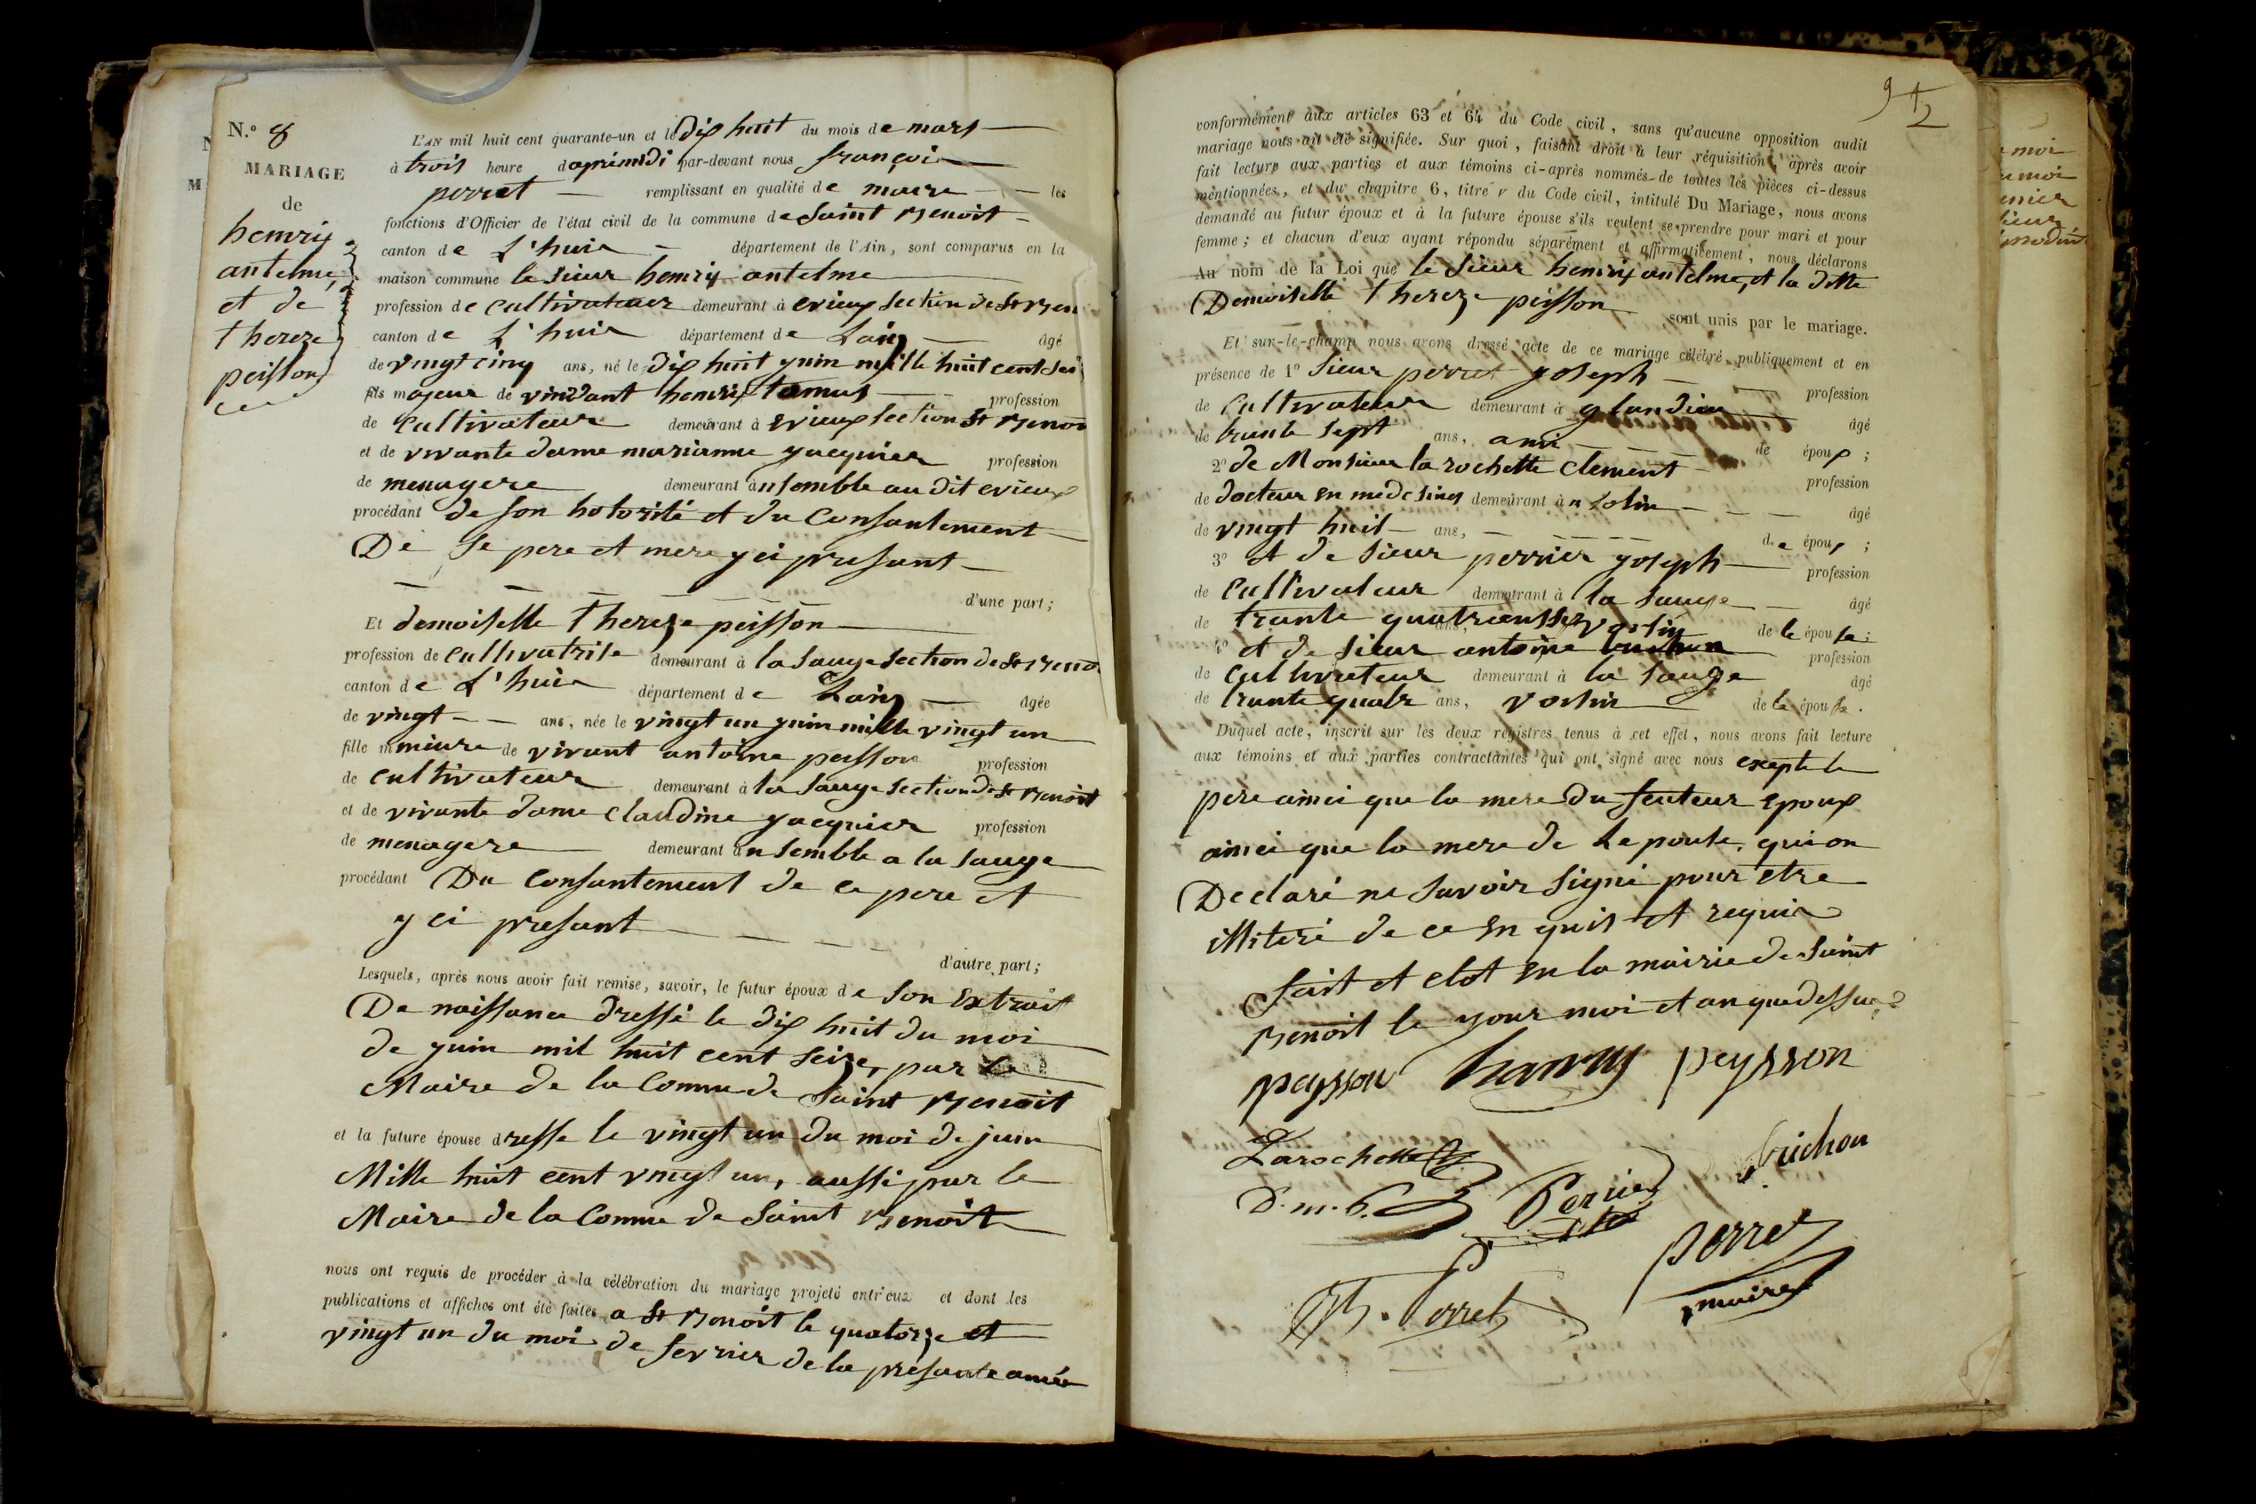 N.º 8
MARIAGE
de
henrij
antelme,
et de
thereze
peisson
L'AN mil huit cent quarante-un et le dix huit du mois de mars
à trois heure daprémidi par-devant nous françois
perret remplissant en qualité de maire les
fonctions d'Officier de l'état civil de la commune de saint Benoit
canton de L'huis département de l'Ain, sont comparus en la
maison commune le sieur henrij antelme
profession de cultivateur demeurant à evieux section de St Ben
canton de L'huis département de Lain âgé
de vingt cinq ans, né le dix huit juin mille huit cent sei
fils majeur de vivant henrij profession
de cultivateur demeurant à evieux section St Benoi
et de vivante dame marianne jacquier profession
de menagere demeurant ansemble au dit evieux
procédant de son hotorité et du consantement
De se pere et mere y ci presant
d'une part;
Et demoiselle thereze peisson
profession de cultivatrise demeurant à la sauge section de St Beno
canton de L'huis département de Lain âgée
de vingt ans, née le vingt un juin mille vingt un
fille mineure de vivant antoine peisson profession
de cultivateur demeurant à la sauge section de St Benoit
et de vivante dame claudine jacquier profession
de menagere demeurant ansemble a la sauge
procédant Du consantement de ce pere et
y ci presant
d'autre part;
Lesquels, après nous avoir fait remise, savoir, le futur époux de son Extrait
De naissance dressé le dix huit du moi
de juin mil huit cent seize, par le
Maire de la Commu de Saint Benoit
et la future épouse dresse le vingt un du moi de juin
Mille huit cent vingt un, aussi par le
Maire de la Commu de Saint Benoit
nous ont requis de procéder à la célébration du mariage projeté entr'eux et dont les
publications et affiches ont été faites a St Benoit le quatorze et
vingt un du moi de fevrier de la presante année
92
conformément aux articles 63 et 64 du Code civil, sans qu'aucune opposition audit
mariage nous ait été signifiée. Sur quoi, faisant droit à leur réquisition, après avoir
fait lecture aux parties et aux témoins ci-après nommés de toutes les pièces ci-dessus
mentionnées, et du chapitre 6, titre V du Code civil, intitulé Du Mariage, nous avons
demandé au futur époux et à la future épouse s'ils veulent se prendre pour mari et pour
femme; et chacun d'eux ayant répondu séparément et affirmativement, nous déclarons
Au nom de la Loi que le sieur henrij antelme, et la ditte
Demoiselle thereze peisson sont unis par le mariage.
Et sur-le-champ nous avons dressé acte de ce mariage célébré publiquement et en
présence de 1º sieur perret joseph profession
de cultivateur demeurant à glandieu âgé
de trante sept ans, ami de époux;
2º de Monsieur la rochette clement profession
de docteur en medesine demeurant à âgé
de vingt huit ans, de époux;
3º et de sieur perrier joseph profession
de cultivateur demeurant à la sauge âgé
de trante quatre ans, voisin de le épouse;
4º et de sieur antoine profession
de cultivateur demeurant à la sauge âgé
de trante quatr ans, voisin de le épouse.
Duquel acte, inscrit sur les deux registres tenus à cet effet, nous avons fait lecture
aux témoins et aux parties contractantes qui ont signé avec nous exepte le
pere ainci que la mere du feuteur epoux
ainci que la mere de Lepouse, qui on
Declaré ne savoir signé pour etre
illiteré de ce en quis et requis
fait et clot en la mairie de saint
Benoit le jour moi et an que dessus
peysson henrij peysson
Larochette
D. m. P. Perrier Guichon
Perret
J. Perret maire